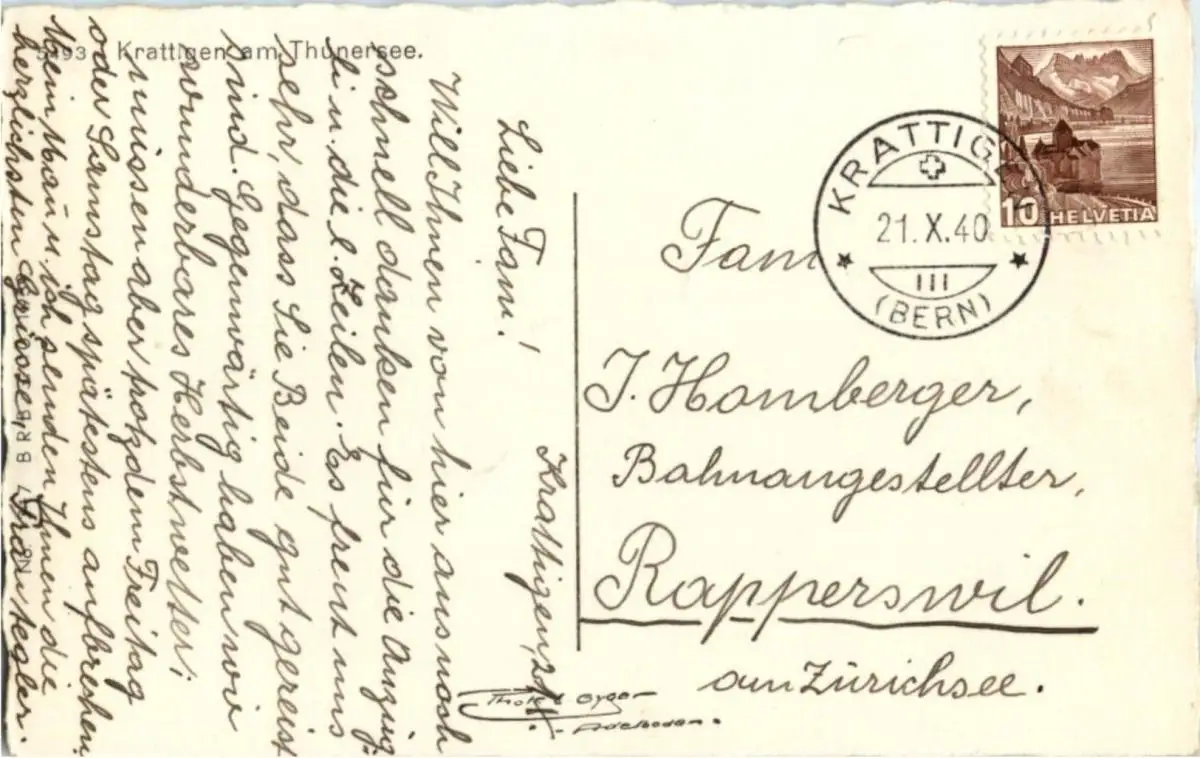 5193 Krattigen am Thunersee.
Krattigen, 21. X.
Liebe Fam. !
Will Ihnen von hier aus noch
schnell danken für die Anzüg-
li u. die l. Zeilen. Es freut uns
sehr, dass Sie Beide gut gereist
sind. Gegenwärtig haben wir
wunderbares Herbstwetter;
müssen aber trotzdem Freitag
oder Samstag spätestens aufbrechen.
Mein Mañ u. ich senden Ihnen die
herzlichsten Grüsse, Frau
KRATTIG
21. X. 40
III
(BERN)
10 HELVETIA
Fam
J. Homberger,
Bahnangestellter,
Rapperswil.
am Zürichsee.
Gyger
Adelboden.